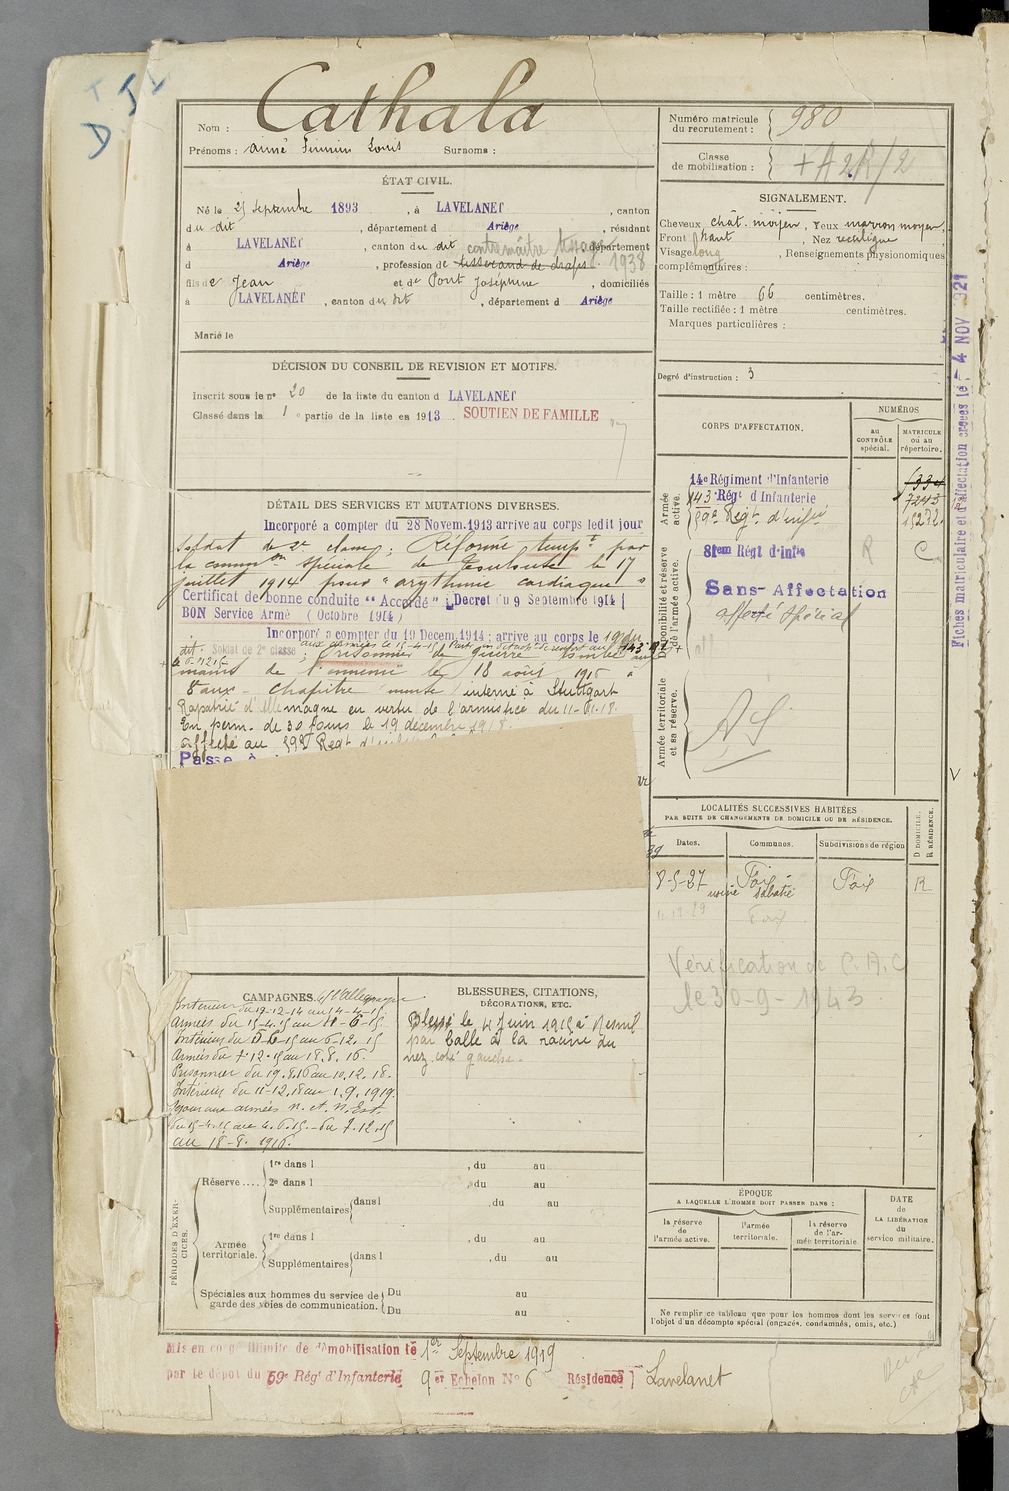 Cathala
Nom :
Prénoms : Aimé Firmin Louis Surnoms :
Numéro matricule du recrutement : 980
Classe de mobilisation :
ÉTAT CIVIL.
Né le 25 septembre 1893, à LAVELANET, canton
du dit, département d Ariège, résidant
à LAVELANET, canton du dit contremaître tissage département
d Ariège, profession de tisserand de draps. 1938
fils de Jean et de Pont Joséphine, domiciliés
à LAVELANET, canton du dit, département d Ariège
Marié le
SIGNALEMENT.
Cheveux chât. moyen, Yeux marron moyen,
Front haut, Nez rectiligne
Visage long, Renseignements physionomiques
complémentaires :
Taille : 1 mètre 66 centimètres.
Taille rectifiée : 1 mètre centimètres.
Marques particulières :
Degré d'instruction : 3
DÉCISION DU CONSEIL DE REVISION ET MOTIFS.
Inscrit sous le nº 20 de la liste du canton d LAVELANET
Classé dans la 1e partie de la liste en 1913 SOUTIEN DE FAMILLE
DÉTAIL DES SERVICES ET MUTATIONS DIVERSES.
Incorporé a compter du 28 Novem. 1913 arrive au corps ledit jour
soldat de 2e classe; Réformé tempre par
la common spéciale de Toulouse le 17
juillet 1914 pour "arythmie cardiaque"
Certificat de bonne conduite "Accordé" Decret du 9 Septembre 1914
BON Service Armé (Octobre 1914)
Incorporé a compter du 19 Decem. 1914; arrive au corps le 19 du
dit. Soldat de 2e classe; aux armées le 15-4-15
Prisonnier de guerre tombé aux
mains de l'ennemi le 18 août 1916
Vaux-Chapitre interné à Stuttgart
Rapatrié d'Allemagne en vertu de l'armistice du 11-11-18.
En perm. de 30 jours le 19 décembre 1918.
affecté au 59e Regt d'
Passé à
CORPS D'AFFECTATION.
NUMÉROS
au CONTRÔLE spécial.
MATRICULE ou au répertoire.
Armée active.
14e Régiment d'Infanterie
143e Régt d'Infanterie 7243
59e Régt d'infie 15272
Disponibilité et réserve de l'armée active.
81em Régt d'infie R C
Sans-Affectation
affecté spécial
Armée territoriale et sa réserve.
AS
Fiches matriculaire et d'affectation créées le: - 4 NOV 1921
LOCALITÉS SUCCESSIVES HABITÉES
PAR SUITE DE CHANGEMENTS DE DOMICILE OU DE RÉSIDENCE.
Dates. Communes. Subdivisions de région
D DOMICILE. R RÉSIDENCE.
8-5-27 Foix - Foix R
usine Sabatié
11.12.29 Foix
Vérification de C.A.C
le 30-9-1943
CAMPAGNES. C/ l'Allemagne
Intérieur du 19-12-14 au 14-4-15.
Armées du 15-4-15 au 4-6-15
Intérieur du 5-6-15 au 6-12.15
Armées du 7.12.15 au 18.8.16.
Prisonnier du 19.8.16 au 10.12.18.
Intérieur du 11-12.18 au 1.9.1919.
Séjour aux armées N. et N. Est.
du 15-4-15 au 4.6.15 - du 7.12.15
au 18-8.1916.
BLESSURES, CITATIONS,
DÉCORATIONS, ETC.
Blessé le 4 Juin 1915 à Mesnil
par balle à la racine du
nez côté gauche.
PÉRIODES D'EXERCICES.
Réserve .... 1re dans l , du au
2e dans l , du au
Supplémentaires dans l , du au
Armée territoriale. 1re dans l , du au
Supplémentaires dans l , du au
Spéciales aux hommes du service de garde des voies de communication. Du au
Du au
ÉPOQUE
A LAQUELLE L'HOMME DOIT PASSER DANS :
la réserve de l'armée active.
l'armée territoriale.
la réserve de l'armée territoriale.
DATE de LA LIBÉRATION du service militaire.
Ne remplir ce tableau que pour les hommes dont les services font
l'objet d'un décompte spécial (engagés, condamnés, omis, etc.)
Mis en congé illimité de démobilisation le 1er Septembre 1919
par le dépôt du 59e Rég' d'Infanterie 9e Echelon Nº 6 Résidence Lavelanet